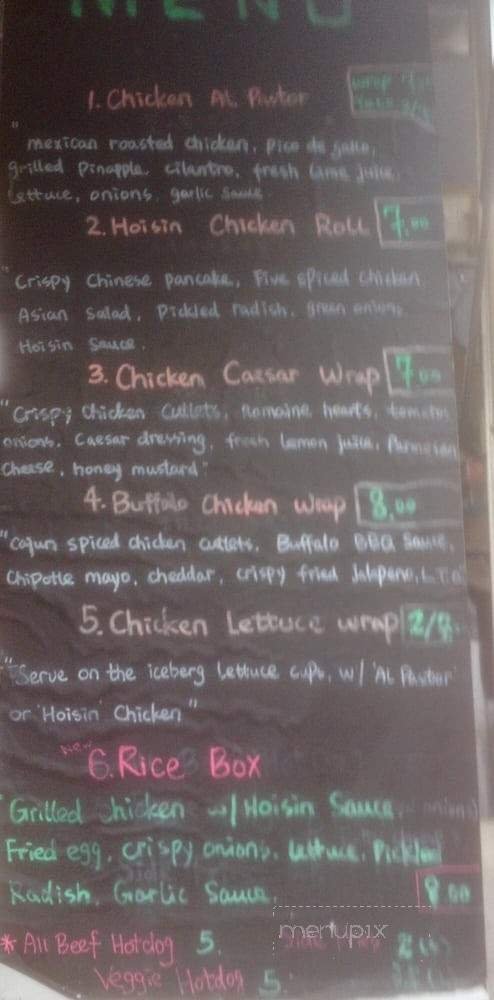 MENU
1. Chicken AL Pastor
"mexican roasted chicken, pico de gallo,
grilled Pineapple, cilantro, fresh lime juice,
Lettuce, onions, garlic sauce
2. Hoisin Chicken Roll 7.00
"Crispy Chinese pancake, Five spiced chicken,
Asian Salad, Pickled radish, green onions,
Hoisin Sauce.
3. Chicken Caesar Wrap 7.00
"Crispy chicken cutlets, Romaine hearts, tomatoes
onions, Caesar dressing, fresh lemon juice, Parmesan
Cheese, honey mustard"
4. Buffalo Chicken Wrap 8.00
"Cajun spiced chicken cutlets, Buffalo BBQ Sauce,
Chipotle mayo, cheddar, crispy fried Jalapeno,
5. Chicken Lettuce wrap 2/8.
"Serve on the iceberg lettuce cups, w/ 'AL Pastor'
or 'Hoisin' Chicken"
New
6. Rice Box
Grilled chicken w/ Hoisin Sauce,
Fried egg, crispy onions, Lettuce, Pickled
Radish, Garlic Sauce,
* All Beef Hotdog 5.
menupix
Veggie Hotdog 5.